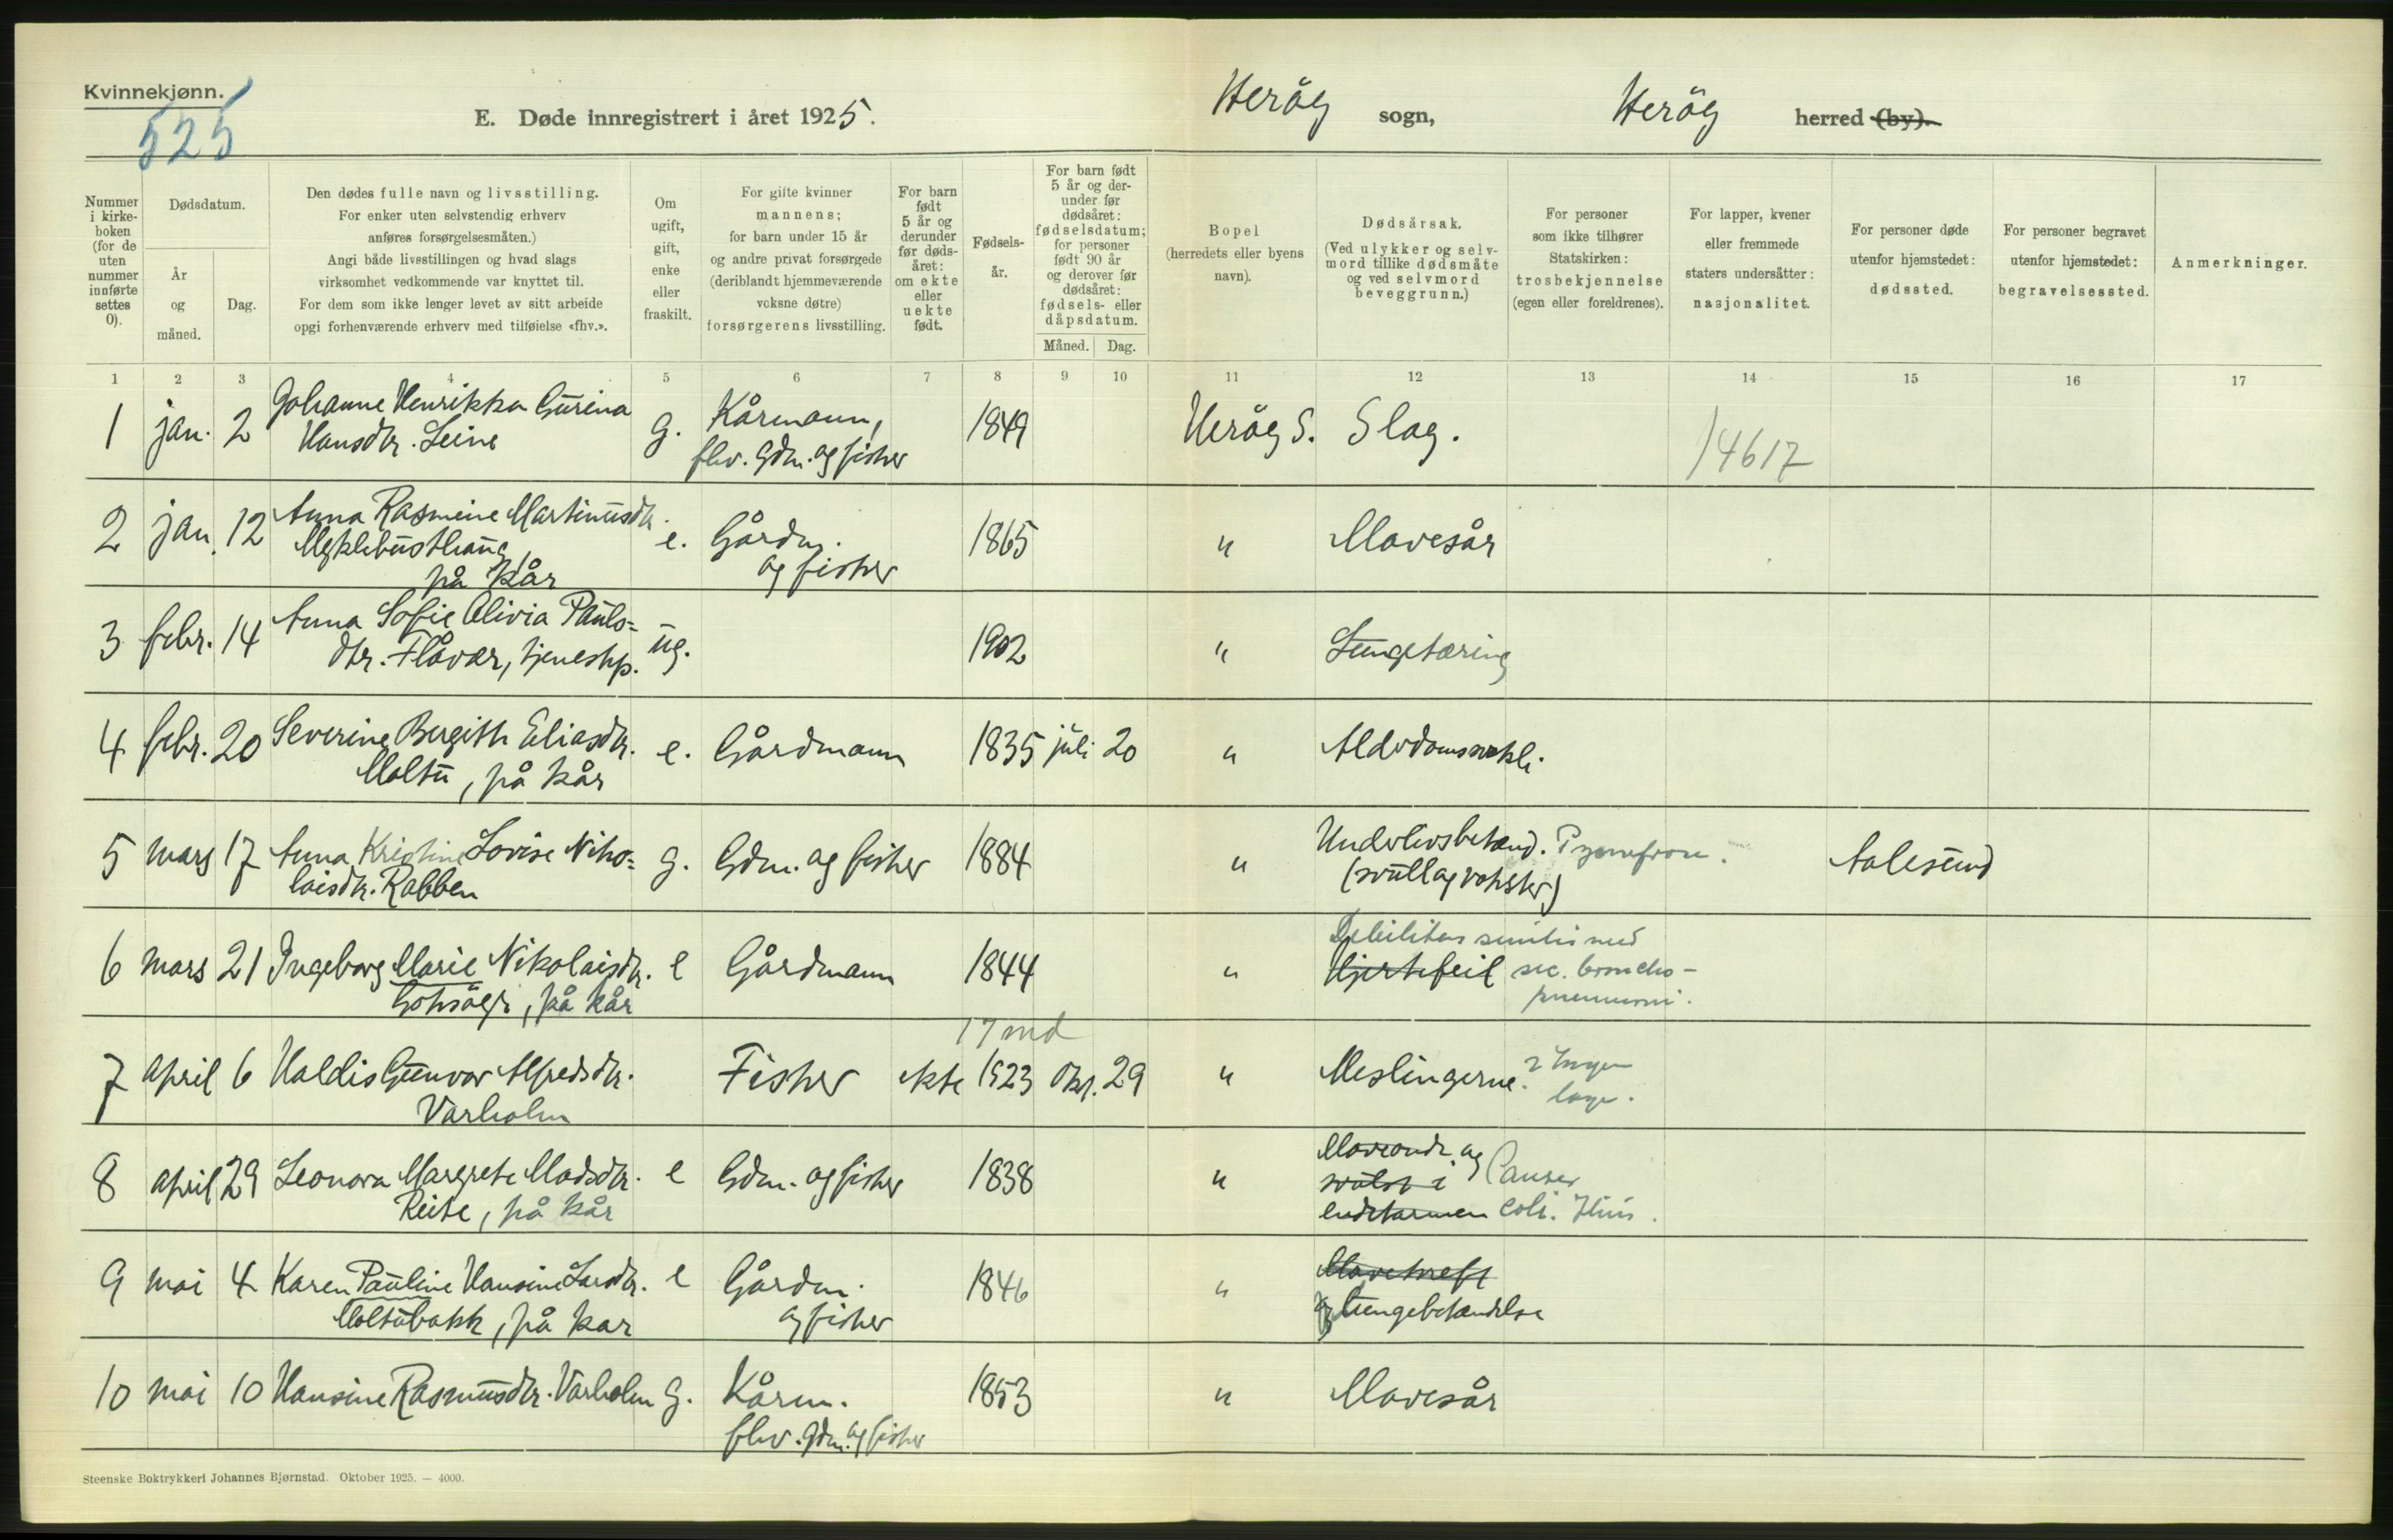 Kvinnekjønn.
525
E. Døde innregistrert i året 1925.
Herøy sogn,
Herøy herred (by).
Nummer i kirke- boken (for de uten nummer innførte settes 0).
Dødsdatum.
År og måned.
Dag.
Den dødes fulle navn og livsstilling.
For enker uten selvstendig erhverv
anføres forsørgelsesmåten.)
Angi både livsstillingen og hvad slags
virksomhet vedkommende var knyttet til.
For dem som ikke lenger levet av sitt arbeide
opgi forhenværende erhverv med tilføielse «fhv.».
Om ugift, gift, enke eller fraskilt.
For gifte kvinner
mannens;
for barn under 15 år
og andre privat forsørgede
(deriblandt hjemmeværende
voksne døtre)
forsørgerens livsstilling.
For barn født 5 år og derunder før døds- året: om ekte eller uekte født.
Fødsels- år.
For barn født 5 år og der- under før dødsåret: fødselsdatum; for personer født 90 år og derover før dødsåret: fødsels- eller dåpsdatum.
Måned. Dag.
Bopel
(herredets eller byens
navn).
Dødsårsak.
(Ved ulykker og selv-
mord tillike dødsmåte
og ved selvmord
beveggrunn.)
For personer
som ikke tilhører
Statskirken:
trosbekjennelse
(egen eller foreldrenes).
For lapper, kvener
eller fremmede
staters undersåtter:
nasjonalitet.
For personer døde
utenfor hjemstedet:
dødssted.
For personer begravet
utenfor hjemstedet:
begravelsessted.
Anmerkninger.
1 2 3 4 5 6 7 8 9 10 11 12 13 14 15 16 17
1 jan. 2 Johanne Henrikka Gurina g. Kårmann, 1849 Herøy S. Slag.
Hansdtr. Leine fhv. Gdm. og fisker 14617
2 jan. 12 Anna Rasmine Martinusdtr. e. Gårdm. 1865 " Mavesår
Myklebusthaug, og fisker
på kår
3 febr. 14 Anna Sofie Olivia Pauls= ug. 1902 " Lungetæring
dtr. Flåvær, tjenestp.
4 febr. 20 Severine Bergith Eliasdtr. e. Gårdmann 1835 juli 20 "
Moltu, på kår
5 mars 17 Anna Kristine Lovise Niko= g. Gdm. og fisker 1884 " Underlivsbetænd. Aalesund
laisdtr. Rabben
6 mars 21 Ingeborg Marie Nikolaisdtr. e Gårdmann 1844 " Hjertefeil
på kår
Debilitas senilis med
sec. broncho-
pneumoni.
17 md
7 april 6 Haldis Gunvor Alfredsdtr. Fisker ekte 1923 okt. 29 " Meslingerne.
Varholm
8 april 29 Leonora Margrete Madsdtr. e Gdm. og fisker 1838 " Maveondt og
Reite, på kår svulst i Cancer
endetarmen coli.
9 mai 4 Karen Pauline Hansine Larsdtr. e Gårdm. 1846 " Mavekreft
Moltubakk, på kår og fisker og lungebetændelse
10 mai 10 Hansine Rasmusdtr. Varholm g. Kårm. 1853 " Mavesår
fhv. gdm. og fisker
Steenske Boktrykkeri Johannes Bjørnstad. Oktober 1925. — 4000.